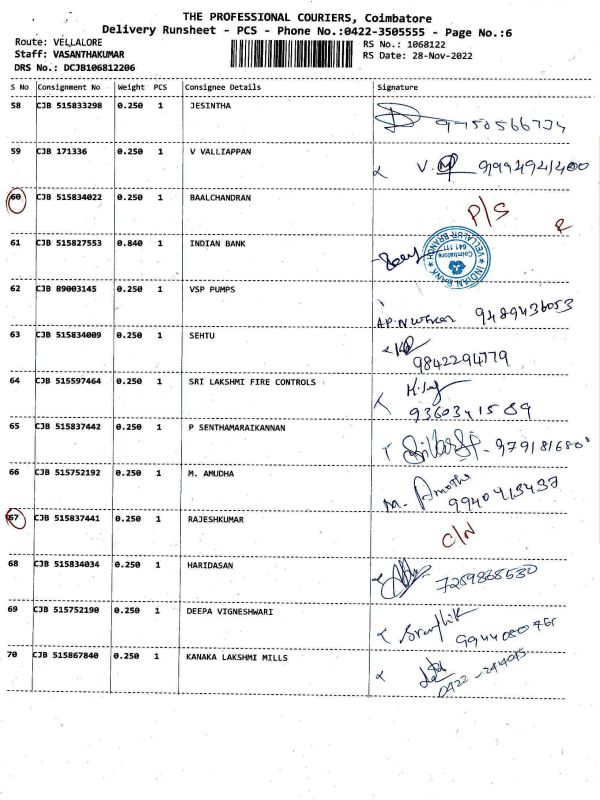 THE PROFESSIONAL COURIERS, Coimbatore
Delivery Runsheet - PCS - Phone No.:0422-3505555 - Page No.:6
Route: VELLALORE RS No.: 1068122
Staff: VASANTHAKUMAR RS Date: 28-Nov-2022
DRS No.: DCJB106812206
S No Consignment No Weight PCS Consignee Details Signature
58 CJB 515833298 0.250 1 JESINTHA
59 CJB 171336 0.250 1 V VALLIAPPAN
V. 9994941400
60 CJB 515834022 0.250 1 BAALCHANDRAN
P/S
61 CJB 515827553 0.840 1 INDIAN BANK
INDIAN BANK VELLALUR BRANCH Coimbatore 641 111
62 CJB 89003145 0.250 1 VSP PUMPS
9489436053
63 CJB 515834009 0.250 1 SEHTU
9842294779
64 CJB 515597464 0.250 1 SRI LAKSHMI FIRE CONTROLS
9360341589
65 CJB 515837442 0.250 1 P SENTHAMARAIKANNAN
66 CJB 515752192 0.250 1 M. AMUDHA
M. 9940413437
67 CJB 515837441 0.250 1 RAJESHKUMAR
C/N
68 CJB 515834034 0.250 1 HARIDASAN
69 CJB 515752190 0.250 1 DEEPA VIGNESHWARI
70 CJB 515867840 0.250 1 KANAKA LAKSHMI MILLS